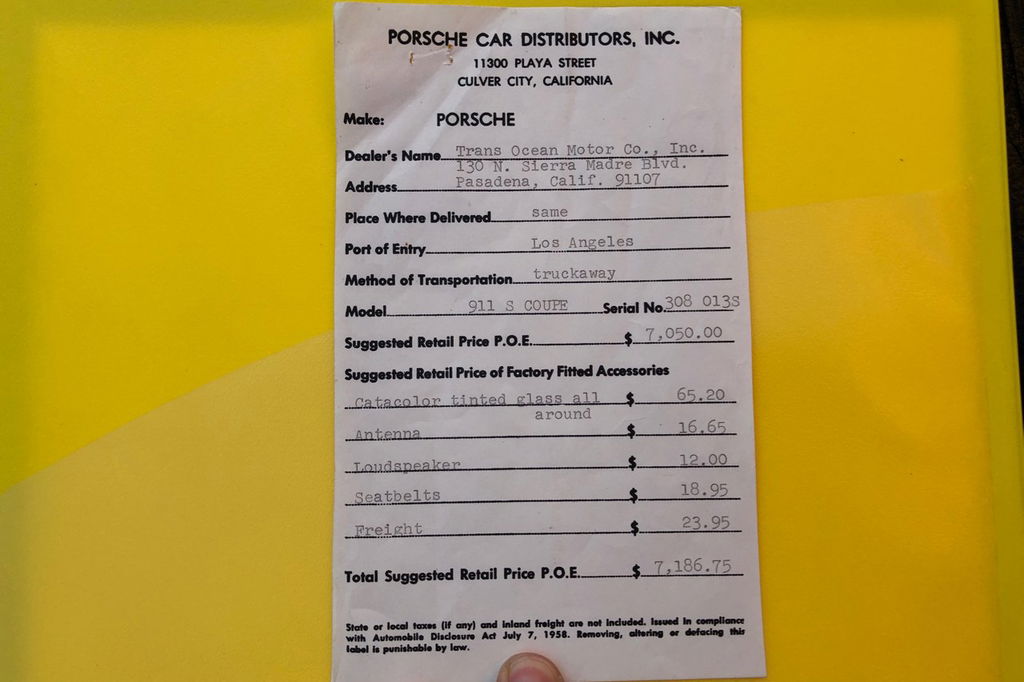 PORSCHE CAR DISTRIBUTORS, INC.
11300 PLAYA STREET
CULVER CITY, CALIFORNIA
Make: PORSCHE
Dealer's Name Trans Ocean Motor Co., Inc.
130 N. Sierra Madre Blvd.
Address Pasadena, Calif. 91107
Place Where Delivered same
Port of Entry Los Angeles
Method of Transportation truckaway
Model 911 S COUPE Serial No. 308 013S
Suggested Retail Price P.O.E. $ 7,050.00
Suggested Retail Price of Factory Fitted Accessories
Catacolor tinted glass all $ 65.20
around
Antenna $ 16.65
Loudspeaker $ 12.00
Seatbelts $ 18.95
Freight $ 23.95
Total Suggested Retail Price P.O.E. $ 7,186.75
State or local taxes (if any) and inland freight are not included. Issued in compliance
with Automobile Disclosure Act July 7, 1958. Removing, altering or defacing this
label is punishable by law.